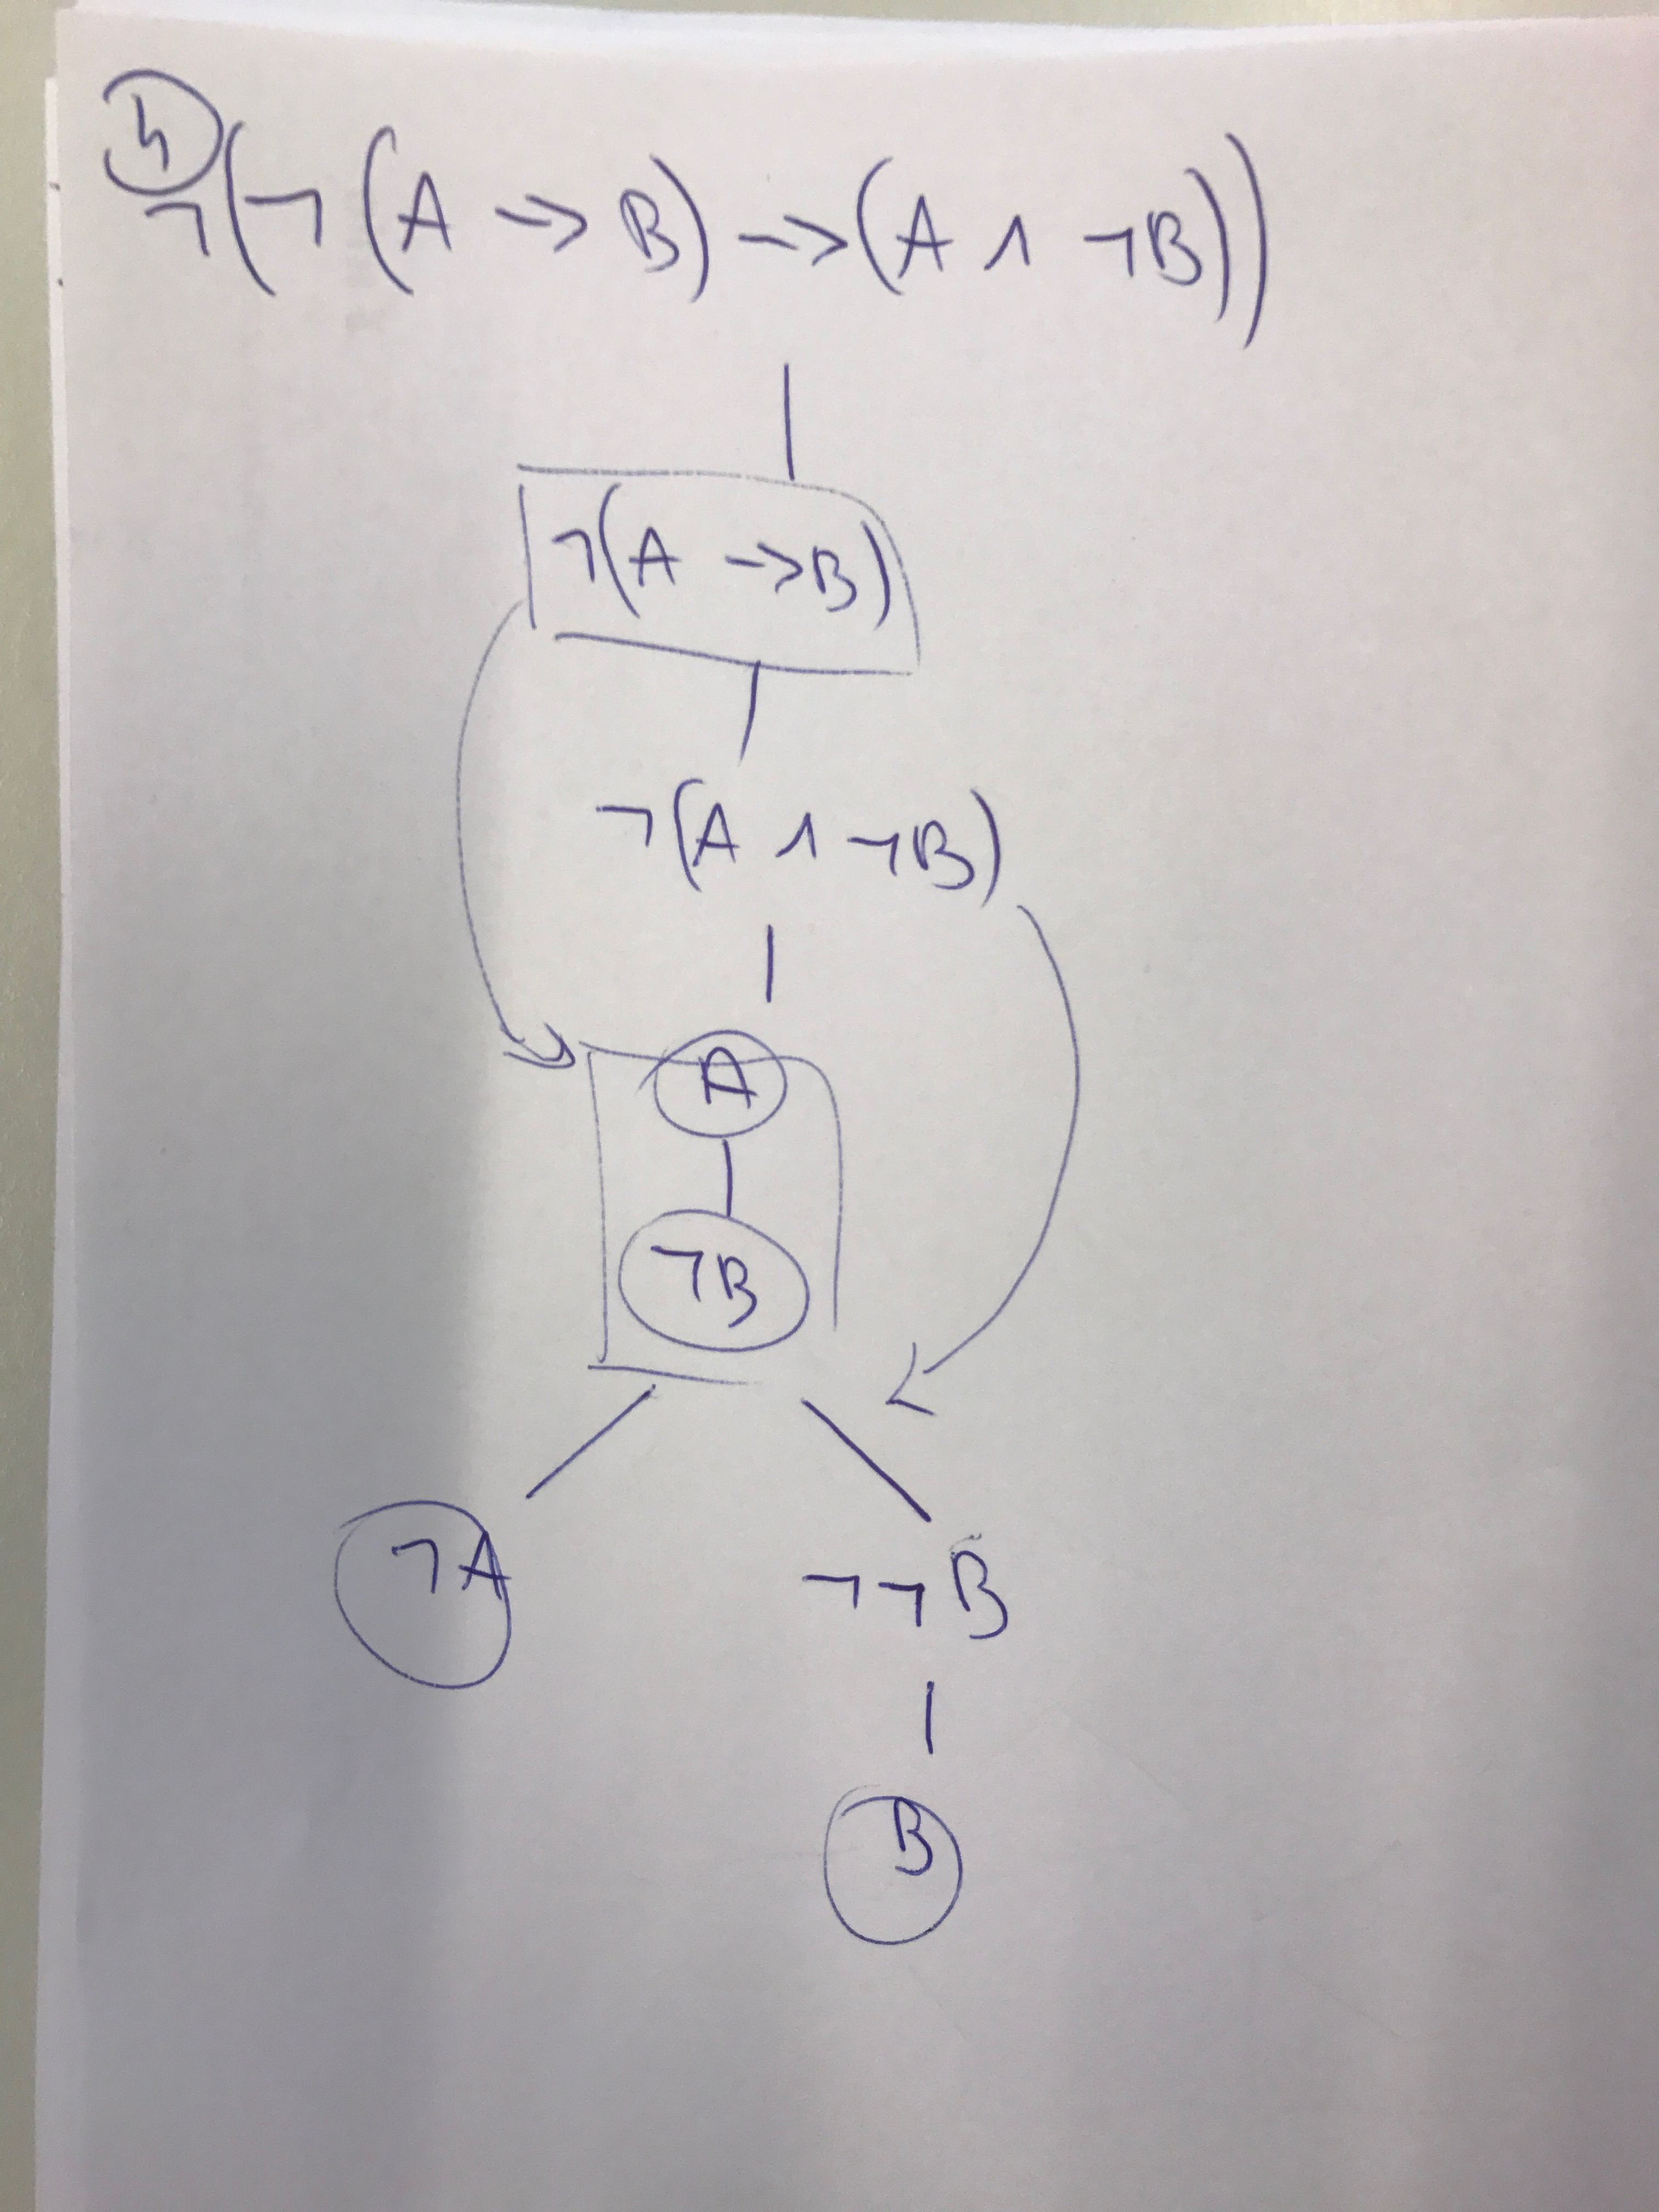 4
¬(¬(A → B) → (A ∧ ¬B))
¬(A → B)
¬(A ∧ ¬B)
A
¬B
¬A ¬¬B
B